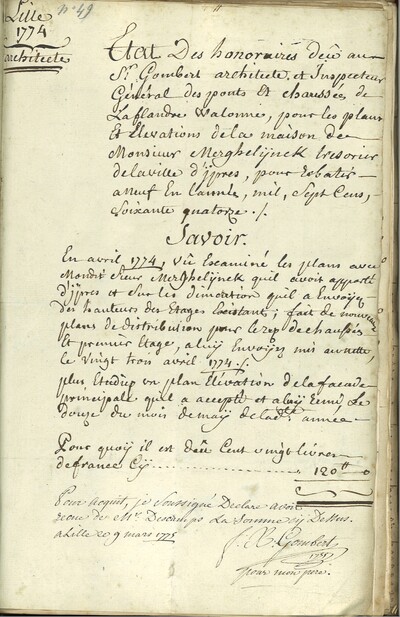 Lille
1774
architecte
n°. 49
Etat Des honoraires deû au
Sr. Gombert architecte et Inspecteur
Général des ponts Et chaussées de
Laflandre Walonne, pour les plans
Et Elevations dela maison de
Monsieur Merghelÿnck tresorier
delaville d'ÿpres, pour Rebatir
aneuf En lannée, mil, Sept Cens,
Soixante quatorze ./.
Savoir.
En avril 1774, vû Examiné les plans avec
Mondit Sieur Merghelÿnck quil avoit apporté
d'ÿpres et Sur les dimentions quil a Envoÿez
des hauteurs des Etages Existant; fait de nouveaux
plans de distribution pour le rez de chaussée
Et premier Etage, aluÿ Envoÿez mis aunette,
le Vingt trois avril 1774 ./.
plus Etudié un plan Elévation delafacade
principale quil a accepté et aluÿ Remi, Le
Douze du mois demaÿ delad.te année
Pour quoÿ il est deû Cent vingt livres
defrance Cÿ 120 ₶ 0
Pour acquit, je Soussigné Declare avoir
recue de Mr. Descamps La Somme cÿ Dessus.
a Lille ce 9 mars 1775
J. B. Gombert
1775
pour mon père.